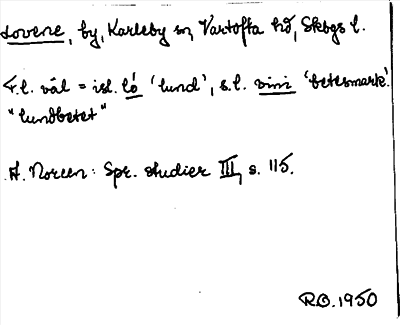 Lovene, by, Karleby sn, Vartofta hd, Skbgs l.
F.l. väl = isl. ló 'lund', s.l. vini 'betesmark'.
"lundbetet"
A. Noreen: Spr. studier III, s. 115.
R.O. 1950